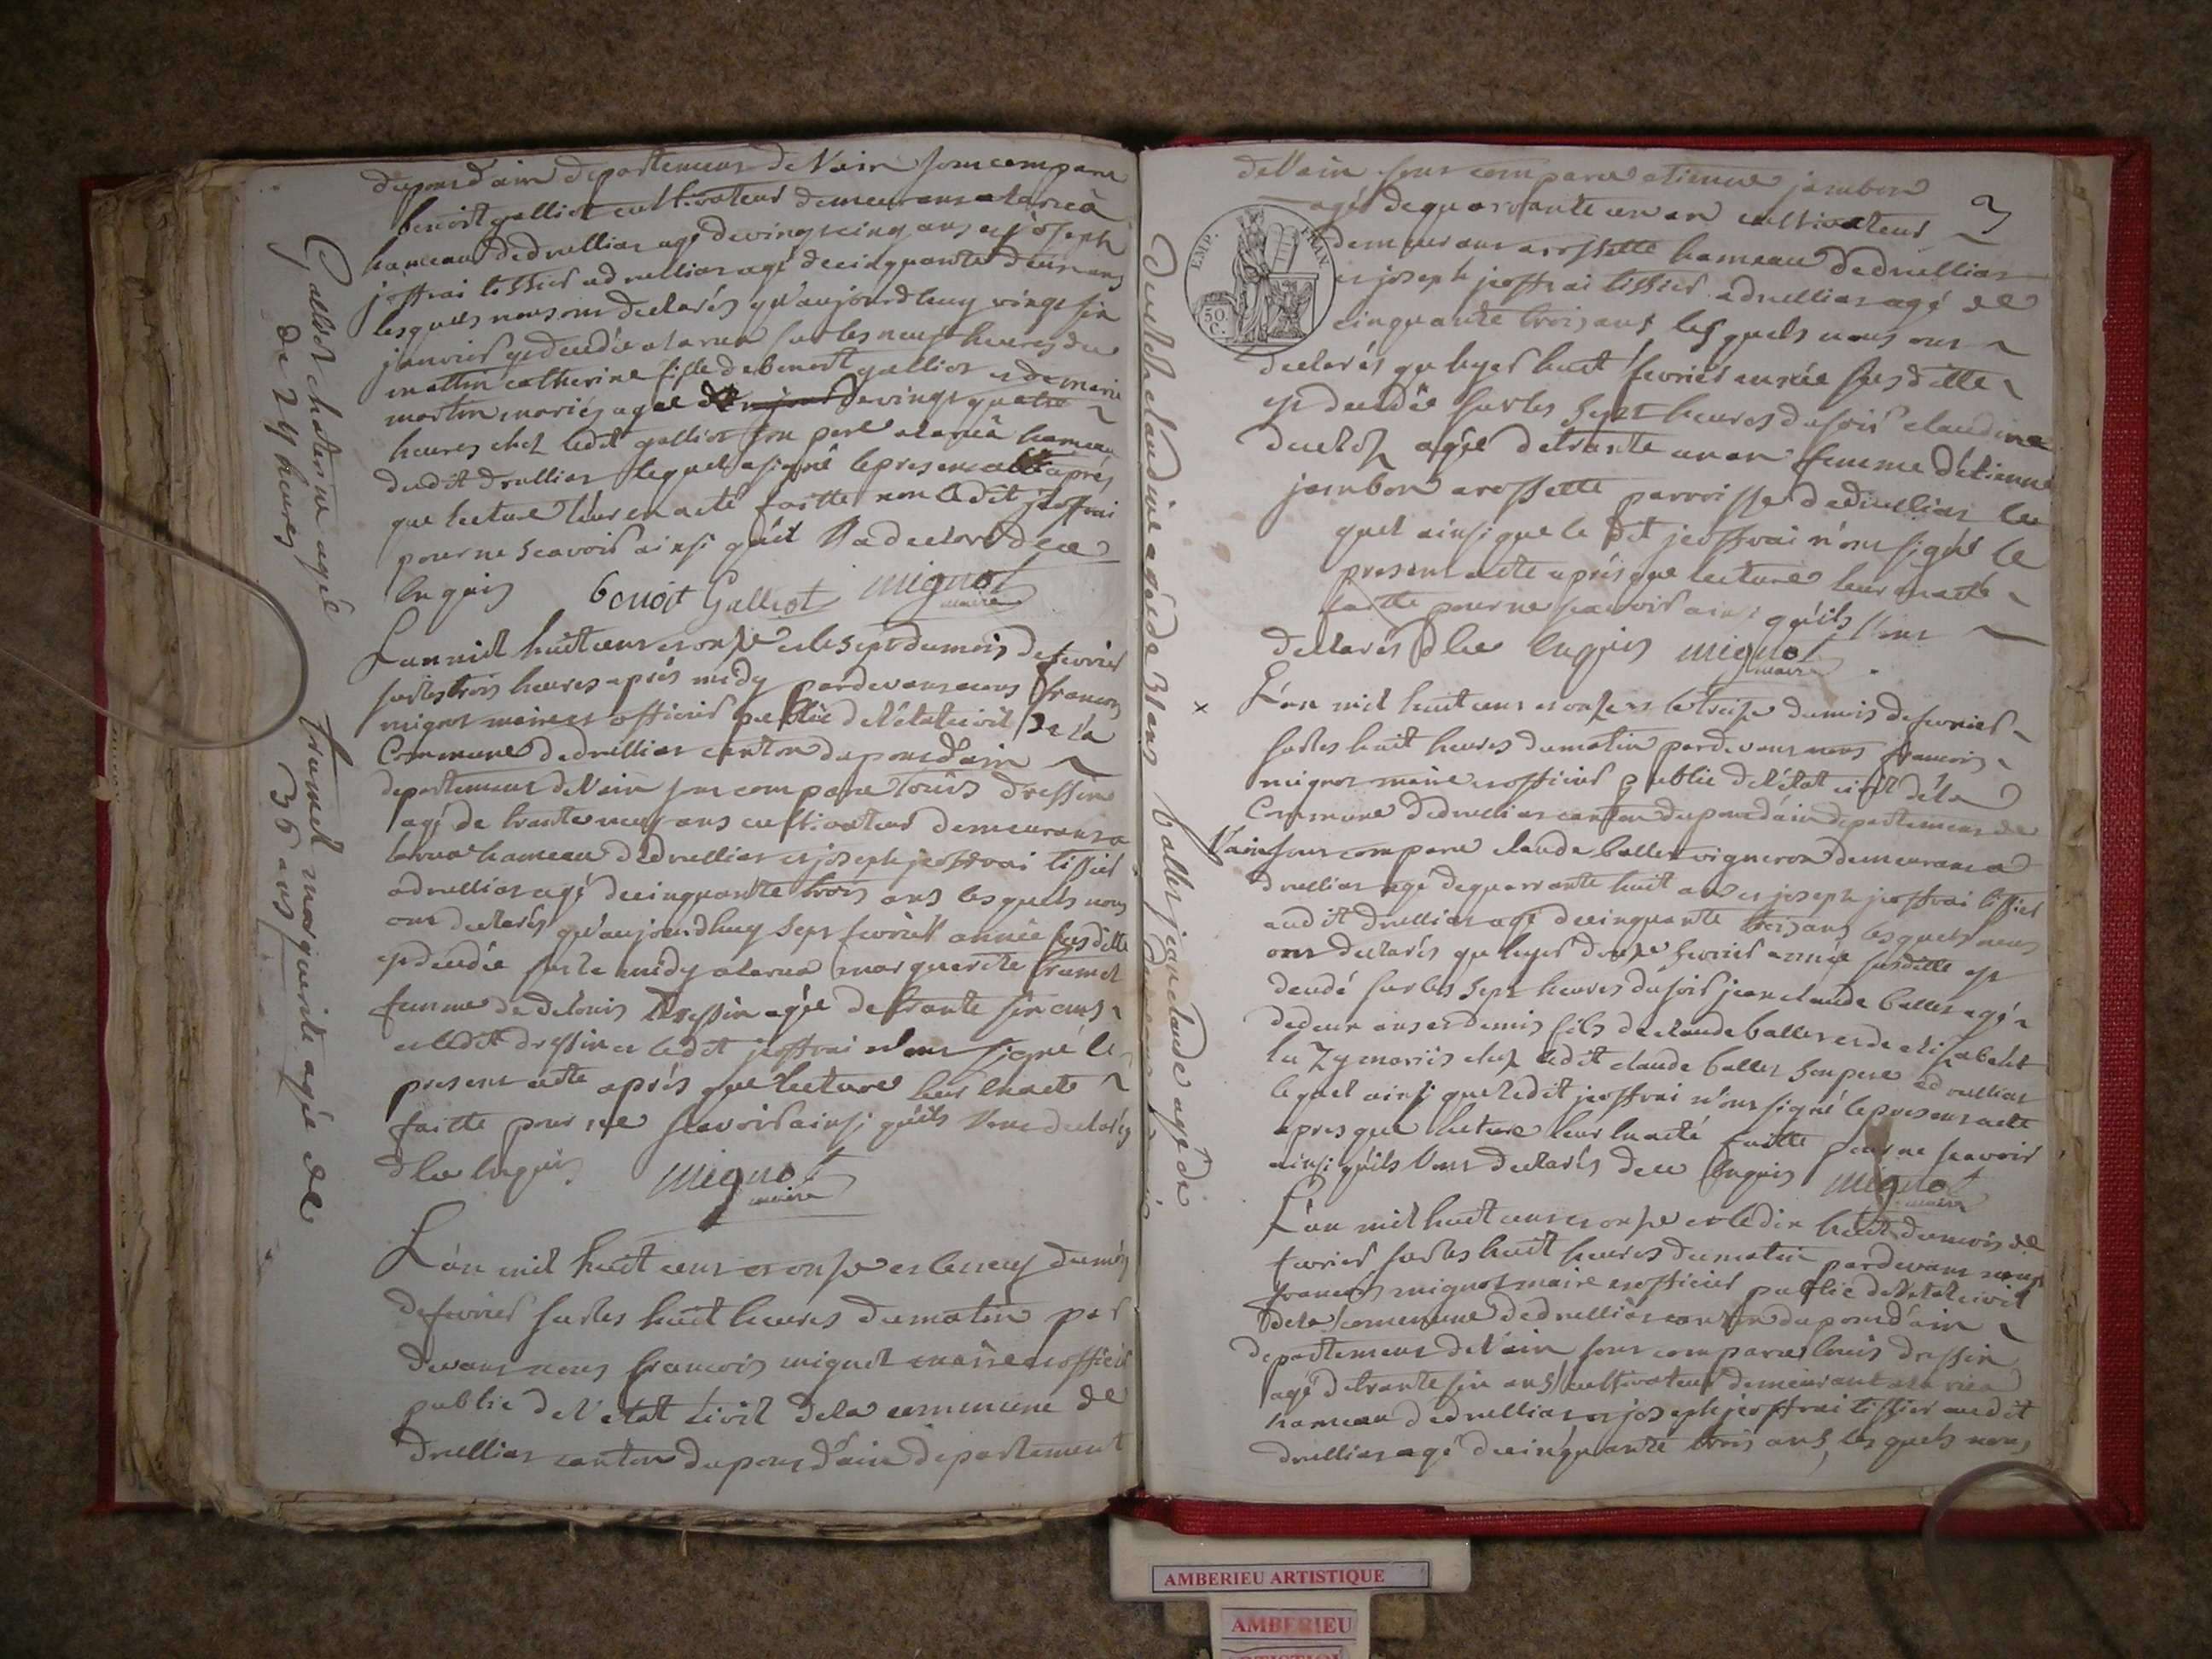 dupond'ain departement de l'ain sont comparu
benoist galliot cultivateur demeurant a larüâ
hameau de druillias agé de vingt cinq ans et joseph
joffrai tissier a druillias agé de cinquante deux ans
lesquels nous ont declarés qu'aujourdhuy vingt six
janvier est deudée a larua sur les neuf heures du
mattin catherine fille de benoit galliot et de marie
martin mariés agee de vingt quatre
heures chez ledit galliot son pere a larüâ hameau
dudit druillias lequel a signé le present acte aprés
que lecture leur en a eté faitte non ledit joffrai
pour ne scavoir ainsi qu'il l'a declaré de ce
enquis benoit Galliot mignot
maire
L'an mil huit cent et onze et le sept du mois de fevrier
sur les trois heures aprés midy pardevant nous francois
mignot maire et officier public de l'état civil de la
Commune de druillias canton du pond'ain
departement de l'ain sont comparu louis dressin
agé de trante neuf ans cultivateur demeurant a
larua hameau de druillias et joseph jeoffrai tissier
a druillias agé de cinquante trois ans lesquels nous
ont declarés qu'aujourdhuy sept fevrier année susditte
est deudée sur le midy a larua marguerite trumel
femme de louis dressin agée de trante six ans
et ledit dressin et ledit jeoffrai n'ont signé le
present acte aprés que lecture leur en a eté
faitte pour ne scavoir ainsi qu'ils l'ont declarés
d ce enquis mignot
maire
L'an mil huit cent et onze et le neuf du mois
de fevrier sur les huit heures du matin par
devant nous francois mignot maire et officier
public de l'etat civil de la commune de
druillias canton du pond'ain departement
Galliot chaterine agée
de 24 heures
trumel marguerite agée de
36 ans
de l'ain sont comparu etienne jambon
agé de quarante un an cultivateur
3
demeurant a rossette hameau de druillias
et joseph jeoffrai tissier a druillias agé de
cinquante trois ans lesquels nous ont
declarés qu hyer huit fevrier année susditte
est deudée sur les sept heures du soir claudine
agée de trante un an femme d'étienne
jambon a rossette parroisse de druillias le
quel ainsi que le dit jeoffrai n'ont signé le
present acte aprés que lecture leur en a eté
faitte pour ne scavoir ainsi qu'ils l'ont
declarés d ce enquis mignot
maire
L'an mil huit cent et onze et le treize du mois de fevrier
sur les huit heures du matin pardevant nous francois
mignot maire et officier public de l'état civil de la
Commune de druillias canton du pond'ain departement de
l'ain sont comparu claude ballet vigneron demeurant a
druillias agé de quarrante huit ans et joseph jeoffrai tissier
audit druillias agé de cinquante trois ans lesquels nous
ont declarés qu hyer douze fevrier année susditte est
deudé sur les sept heures du soir jean claude ballet agé
de deux ans et demis fils de claude ballet et de elisabeht
mariés chez ledit claude ballet son pere a druillias
lequel ainsi que ledit jeoffrai n'ont signé le present acte
apres que lecture leur en a eté faitte pour ne scavoir
ainsi qu'ils l'ont declarés de ce enquis mignot
maire
L'an mil huit cent et onze et le dix huit du mois de
fevrier sur les huit heures du matin pardevant nous
francois mignot maire et officier public de l'etat civil
de la commune de druillias canton du pond'ain
departement de l'ain sont comparu louis dressin
agé de trante six ans cultivateur demeurant a la rüa
hameau de druillias et joseph jeoffrai tissier audit
druillias agé de cinquante trois ans, lesquels nous
claudine agée de 31 ans
ballet jean claude agé de
EMP. FRAN.
50
C.
x
AMBERIEU ARTISTIQUE
AMBERIEU
ARTISTIQUE